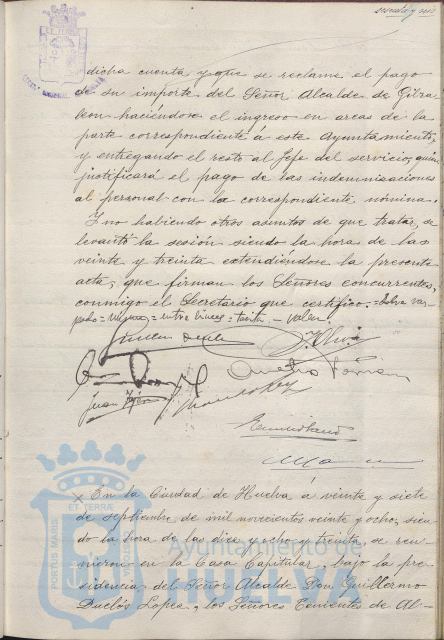 sesenta y seis
dicha cuenta y que se reclame el pago
de su importe del Señor Alcalde de Gibra
leon haciéndose el ingreso en arcas de la
parte correspondiente á este Ayuntamiento,
y entregando el resto al Jefe del servicio, quien
justificará el pago de las indemnizaciones
al personal con la correspondiente nómina.
Y no habiendo otros asuntos de que tratar, se
levantó la sesión siendo la hora de las
veinte y treinta extendiéndose la presente
acta, que firman los Señores concurrentes,
conmigo el Secretario que certifico.
valen
Juan
x En la Ciudad de Huelva á veinte y siete
de septiembre de mil novecientos veinte y ocho, sien
do la hora de las diez y ocho y treinta, se reu
nieron en la Casa Capitular, bajo la pre
sidencia del Señor Alcalde Don Guillermo
Duclós Lopez, los Señores Tenientes de Al-
PORTUS MARIS
ET TERRÆ
Ayuntamiento de
HUELVA